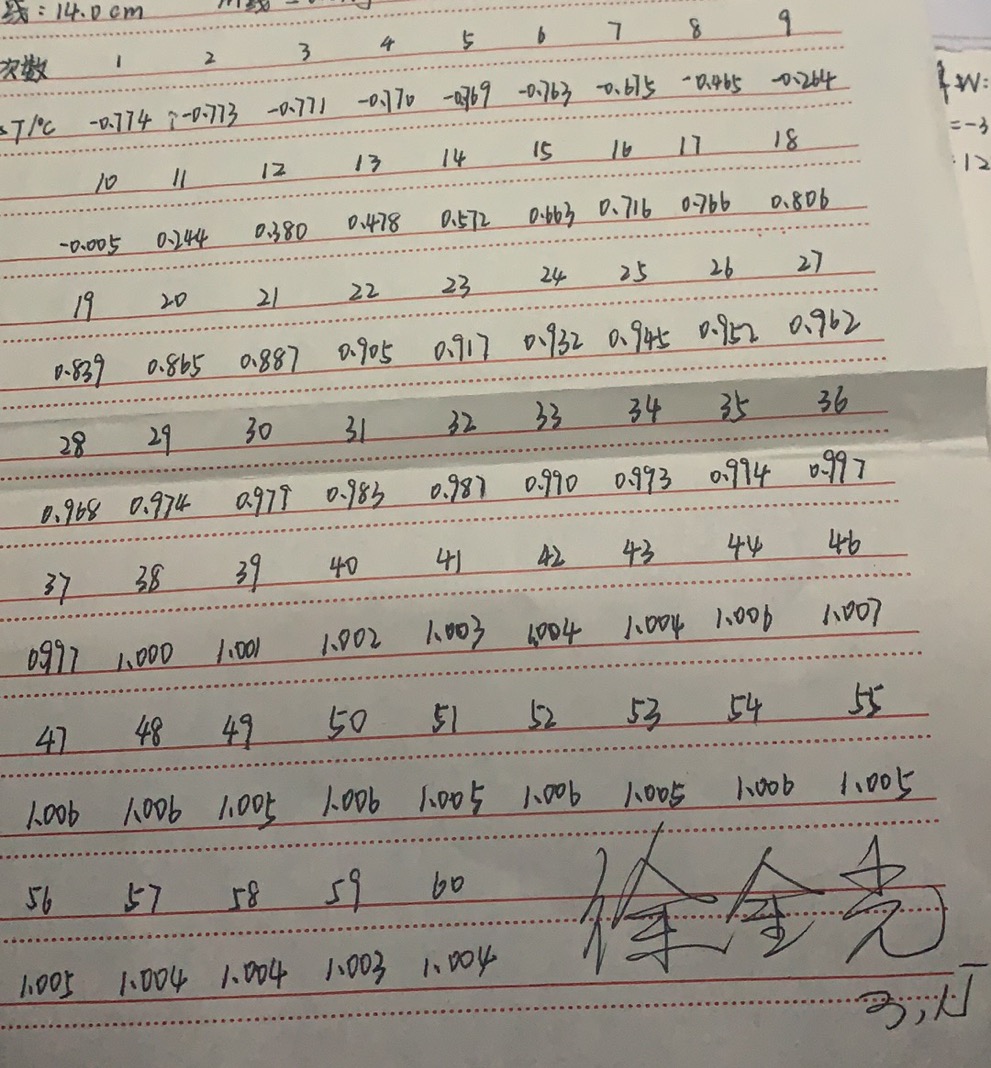 线:14.0cm
次数 1 2 3 4 5 6 7 8 9
△T/℃ -0.774 -0.773 -0.771 -0.770 -0.769 -0.763 -0.675 -0.465 -0.264
10 11 12 13 14 15 16 17 18
-0.005 0.244 0.380 0.478 0.572 0.663 0.716 0.766 0.806
19 20 21 22 23 24 25 26 27
0.839 0.865 0.887 0.905 0.917 0.932 0.945 0.952 0.962
28 29 30 31 32 33 34 35 36
0.968 0.974 0.979 0.983 0.987 0.990 0.993 0.994 0.997
37 38 39 40 41 42 43 44 46
0.997 1.000 1.001 1.002 1.003 1.004 1.004 1.006 1.007
47 48 49 50 51 52 53 54 55
1.006 1.006 1.005 1.006 1.005 1.006 1.005 1.006 1.005
56 57 58 59 60
1.005 1.004 1.004 1.003 1.004
W:
=-3
12